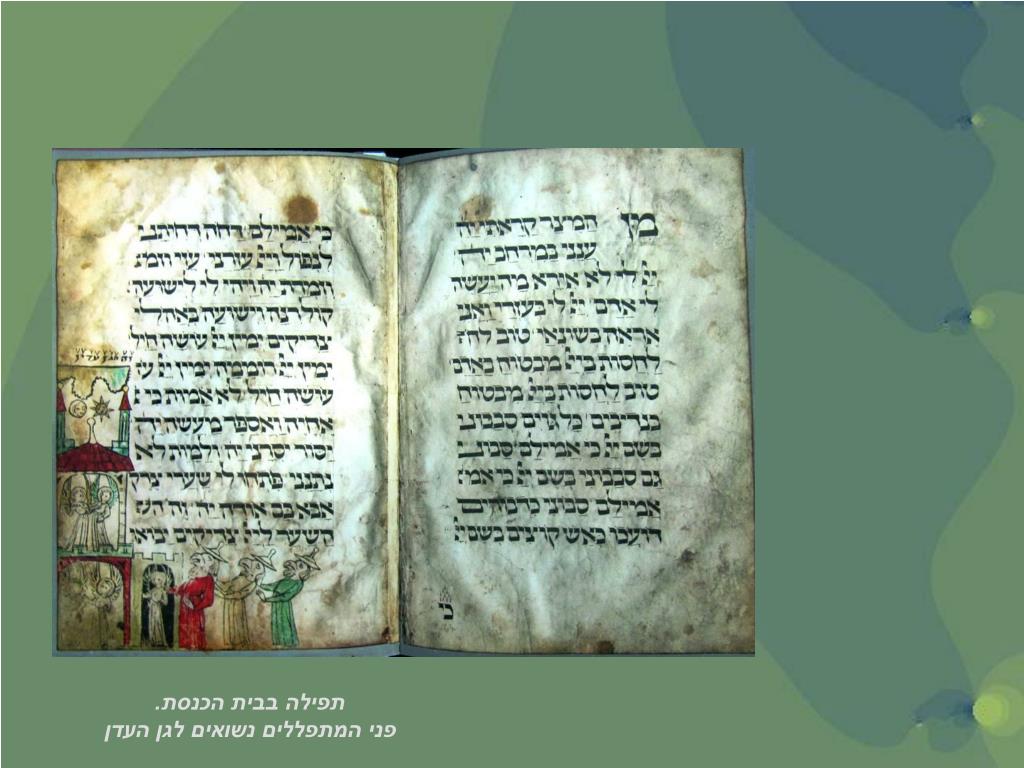 מן המיצר קראתי יה
ענני במרחב יה
ייָ לי לא אירא מה יעשה
לי אדם ייָ לי בעוזרי ואני
אראה בשונאי טוב לח
לחסות בייָ מבטוח באדם
טוב לחסות בייָ מבטוח
בנדיבים כל גוים סבבוני
בשם ייָ כי אמילם סבוני
גם סבבוני בשם ייָ כי אמי
אמילם סבוני כדבורים
דועכו כאש קוצים בשם ייָ
כי
כי אמילם דחה דחיתני
לנפול וייָ עזרני עזי וזמר
וזמרת יה ויהי לי לישועה
קול רנה וישועה באהלי
צדיקים ימין ייָ עושה חיל
ימין ייָ רוממה ימין ייָ ע
עושה חיל לא אמות כי
אחיה ואספר מעשה יה
יסור יסרני יה ולמות לא
נתנני פתחו לי שערי צדק
אבא בם אודה יה זה הש
השער לייָ צדיקים יבואו
תפילה בבית הכנסת.
פני המתפללים נשואים לגן העדן